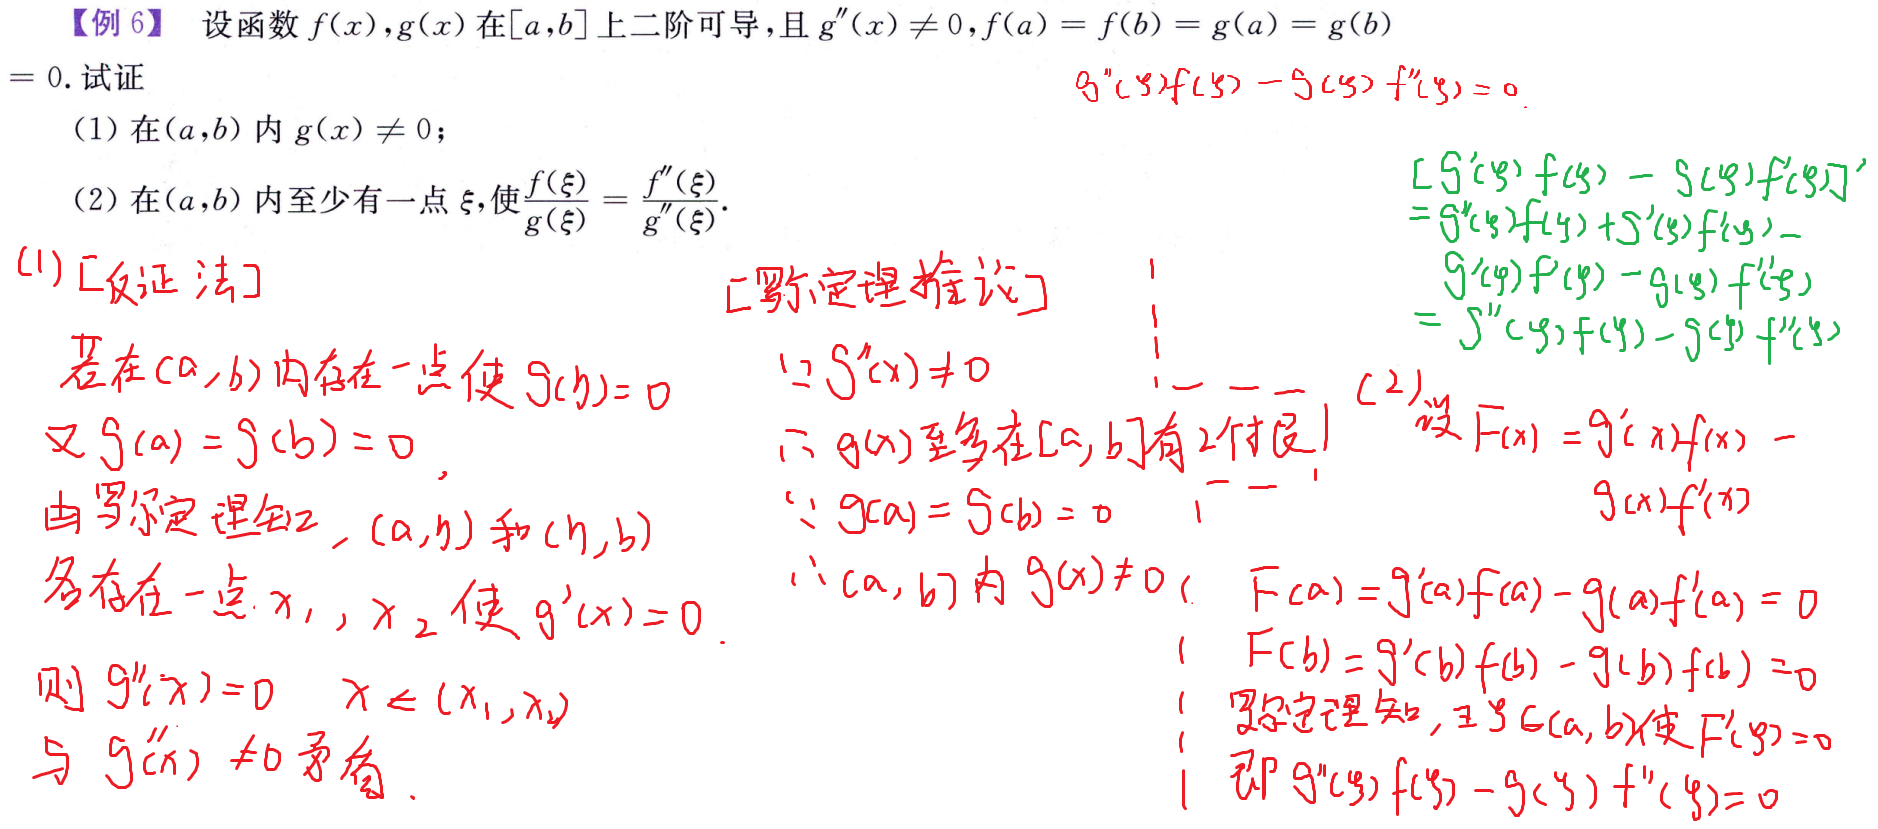 【例 6】 设函数 f(x),g(x) 在[a,b] 上二阶可导,且 g″(x) ≠ 0,f(a) = f(b) = g(a) = g(b)
= 0. 试证
(1) 在(a,b) 内 g(x) ≠ 0;
(2) 在(a,b) 内至少有一点 ξ,使f(ξ)/g(ξ) = f″(ξ)/g″(ξ).
g″(ξ)f(ξ) - g(ξ) f″(ξ) = 0.
[g′(ξ) f(ξ) - g(ξ)f′(ξ)]′
= g″(ξ)f(ξ) + g′(ξ)f′(ξ) -
g′(ξ)f′(ξ) - g(ξ)f″(ξ)
= g″(ξ)f(ξ) - g(ξ)f″(ξ)
(1) [反证法]
若在(a,b)内存在一点使g(η)=0
又g(a)=g(b)=0,
由罗尔定理知, (a,η)和(η,b)
各存在一点x₁, x₂使g′(x)=0.
则g″(x)=0 x∈(x₁,x₂)
与g″(x)≠0矛盾.
[罗尔定理推论]
∵g″(x)≠0
∴g(x)至多在[a,b]有2个根
∵g(a)=g(b)=0
∴(a,b)内g(x)≠0
(2) 设F(x)=g′(x)f(x)-
g(x)f′(x)
F(a)=g′(a)f(a)-g(a)f′(a)=0
F(b)=g′(b)f(b)-g(b)f(b)=0
罗尔定理知,∃ξ∈(a,b)使F′(ξ)=0
即g″(ξ)f(ξ)-g(ξ)f″(ξ)=0